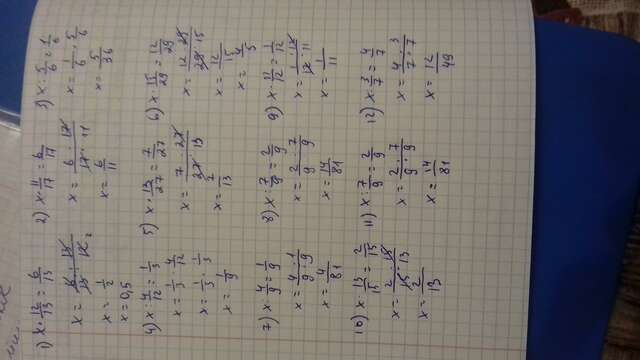 1) x · 12/13 = 6/13
x = 6 · 13 / 13 · 12 2
x = 1/2
x = 0,5
2) x · 11/17 = 6/17
x = 6 · 17 / 17 · 11
x = 6/11
3) x · 5/6 = 1/6
x = 1/6 · 5/6
x = 5/36
4) x · 4/12 = 1/3
x = 1/3 · 4/12
x = 1/3 · 1/3
x = 1/9
5) x · 13/27 = 7/27
x = 7 · 27 / 27 · 13
x = 7/13
6) x · 15/29 = 12/29
x = 12 · 29 / 29 · 15
x = 12/15
x = 4/5
7) x · 4/9 = 1/9
x = 4 · 1 / 9 · 9
x = 4/81
8) x · 7/9 = 2/9
x = 2 · 7 / 9 · 9
x = 14/81
9) x · 11/12 = 1/12
x = 1 · 12 / 12 · 11
x = 1/11
10) x · 13/15 = 2/15
x = 2 · 15 / 15 · 13
x = 2/13
11) x · 7/9 = 2/9
x = 2 · 7 / 9 · 9
x = 14/81
12) x · 3/7 = 4/7
x = 4 · 3 / 7 · 7
x = 12/49